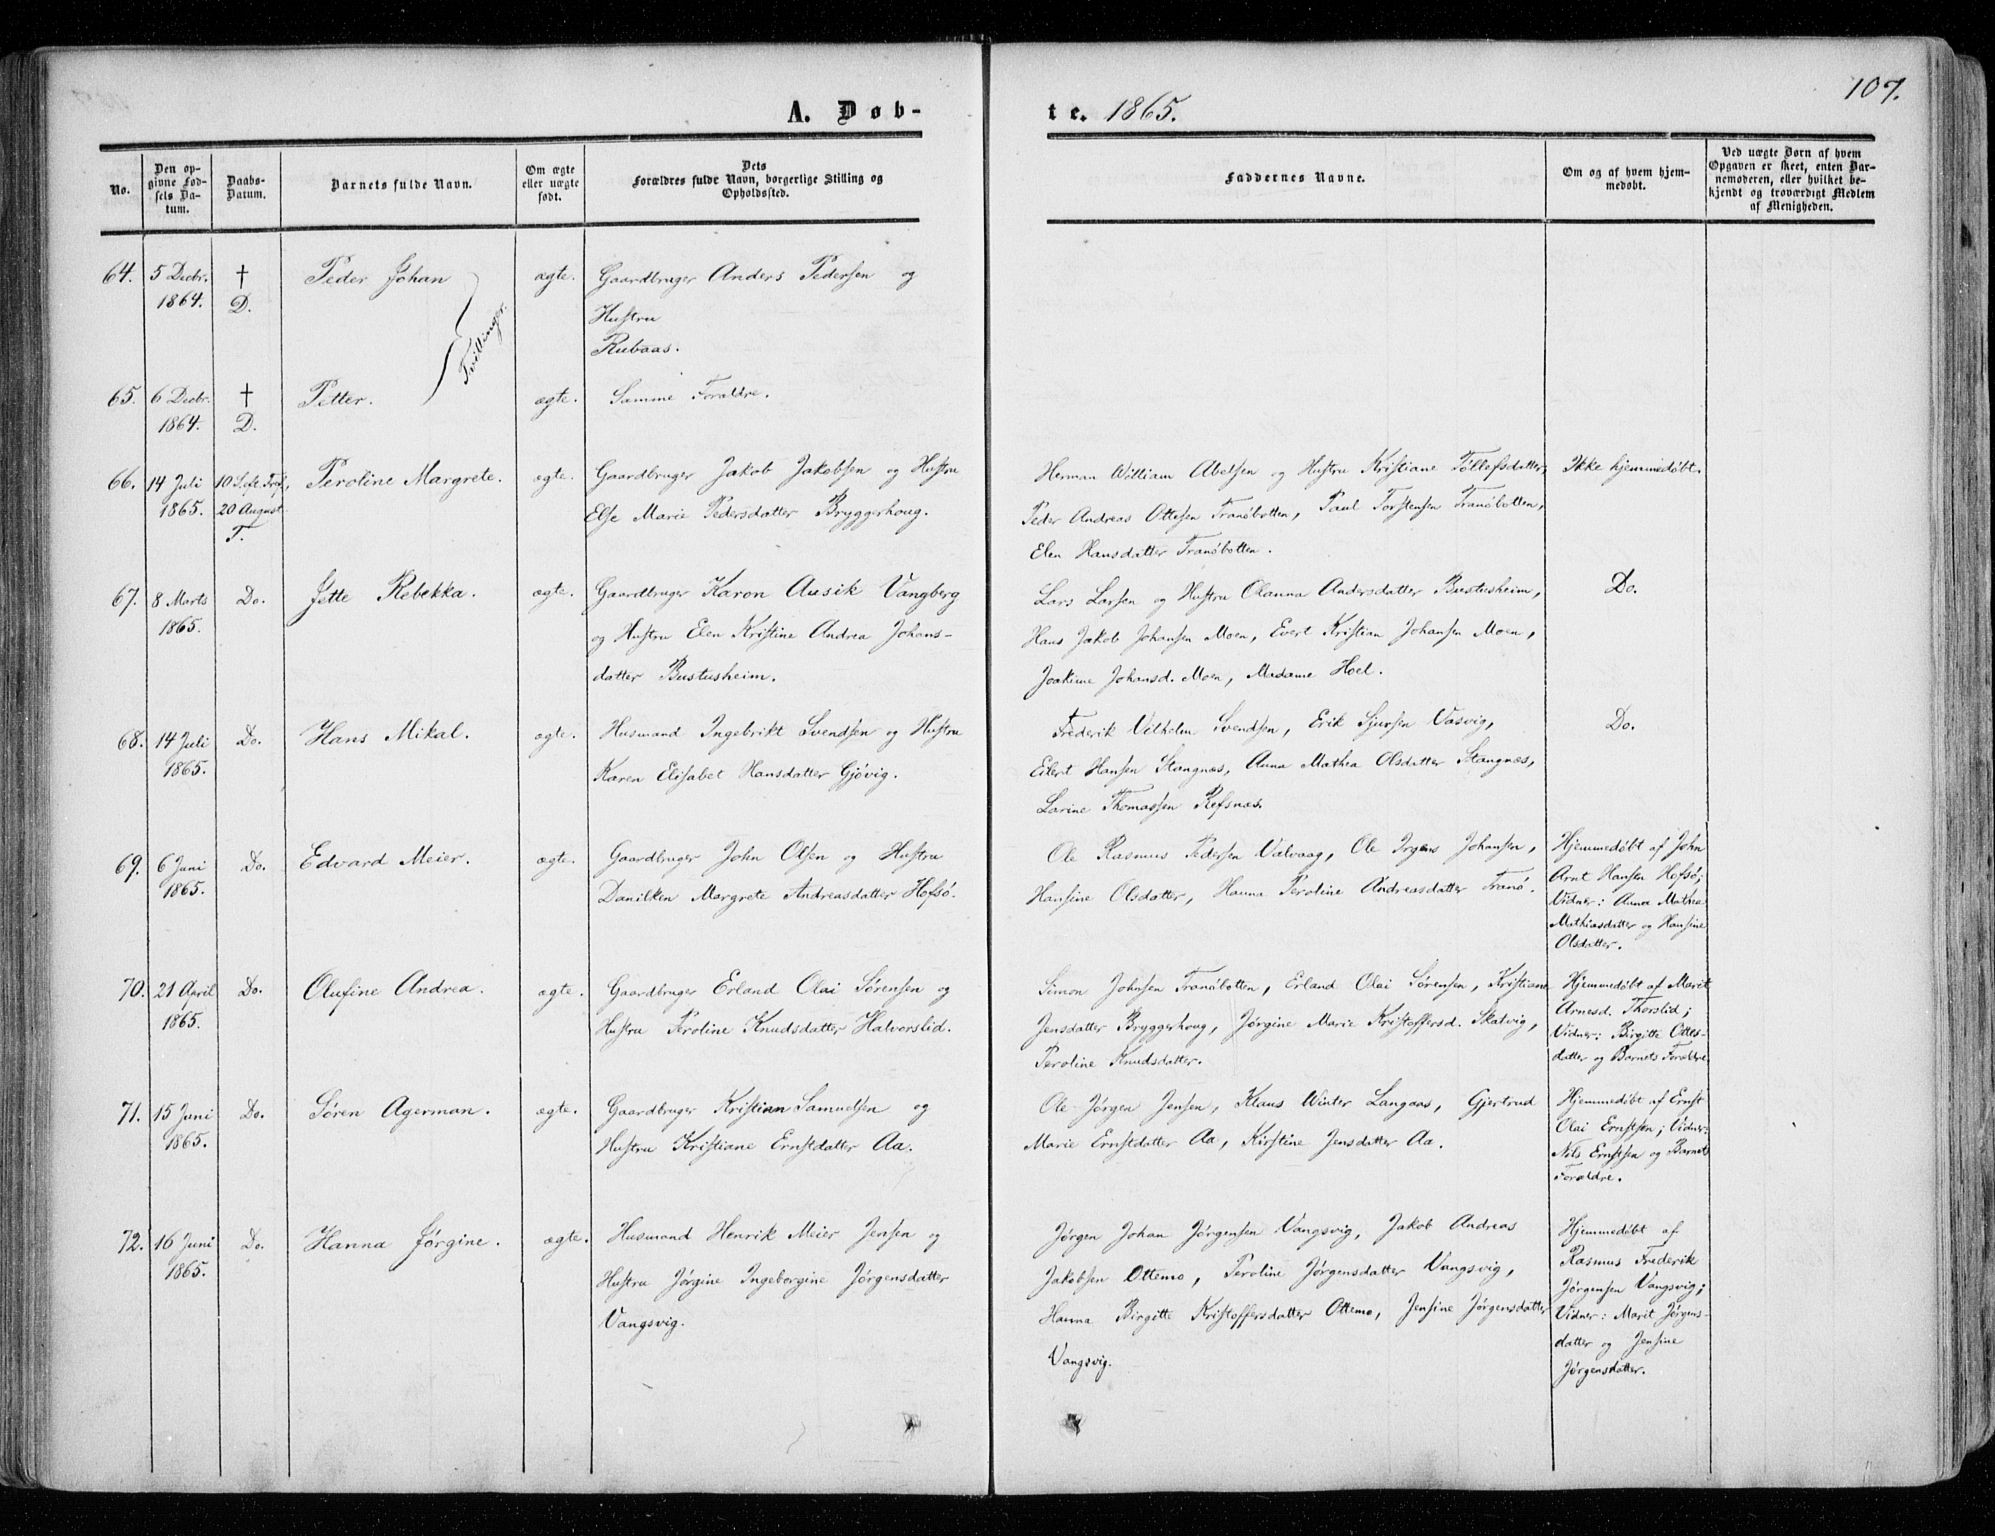 107.
A. Døb-
te. 1865.
No.
Den op-
givne Fød-
sels Da-
tum.
Daabs-
Datum.
Barnets fulde Navn.
Om ægte
eller uægte
født.
Dets
Forældres fulde Navn, borgerlige Stilling og
Opholdssted.
Faddernes Navne.
Om og af hvem hjem-
medøbt.
Ved uægte Børn af hvem
Opgaven er skeet, enten Bar-
nemoderen, eller hvilket be-
kjendt og troværdigt Medlem
af Menigheden.
64. 5 Decbr. † Peder Johan ægte. Gaardbruger Anders Pedersen og
1864. D. Hustru
Tvillinger.
Rubaas.
65. 6 Decbr. † Petter. ægte. Samme Forældre.
1864. D.
66. 14 Juli 10 S. e. Tref. Peroline Margrete. ægte. Gaardbruger Jakob Jakobsen og Hustru
1865. 20 August Else Marie Pedersdatter Bryggerhoug.
T.
Herman William Abelsen og Hustru Kristiane Tøllefsdatter,
Peder Andreas Ottesen Tranøbotten, Paul Torstensen Tranøbotten,
Elen Hansdatter Tranøbotten.
Ikke hjemmedøbt.
67. 8 Marts Do. Jette Rebekka. ægte. Gaardbruger Karon Ausik Vangberg
1865. og Hustru Elen Kristine Andrea Johans-
datter Bustusheim.
Lars Larsen og Hustru Olanna Andersdatter Bustusheim,
Hans Jakob Johansen Moen, Evert Kristian Johansen Moen,
Joakime Johansd. Moen, Madame Hoel.
Do.
68. 14 Juli Do. Hans Mikal. ægte. Husmand Ingebrikt Svendsen og Hustru
1865. Karen Elisabet Hansdatter Gjøvig.
Frederik Vilhelm Svendsen, Erik Sjursen Vasvig,
Eilert Hansen Stangnæs, Anna Mathea Olsdatter Stangnæs,
Larine Thomassen Refsnæs.
Do.
69. 6 Juni Do. Edvard Meier. ægte. Gaardbruger John Olsen og Hustru
1865. Danilken Margrete Andreasdatter Hofsø.
Ole Rasmus Pedersen Valvaag, Ole Irgens Johansen,
Hansine Olsdatter, Hanna Peroline Andreasdatter Tranø.
Hjemmedøbt af John
Arnt Hansen Hofsø;
Vidner: Anna Mathea
Mathiasdatter og Hansine
Olsdatter.
70. 21 April Do. Olufine Andrea. ægte. Gaardbruger Erland Olai Sørensen og
1865. Hustru Peroline Knudsdatter Halvorslid.
Simon Johnsen Tranøbotten, Erland Olai Sørensen, Kristiane
Jensdatter Bryggerhoug, Jørgine Marie Kristoffersd. Skatvig,
Peroline Knudsdatter.
Hjemmedøbt af Marit
Arnesd. Thorslid;
Vidner: Birgitte Ottes-
datter og Barnets Forældre.
71. 15 Juni Do. Søren Agerman. ægte. Gaardbruger Kristian Samuelsen og
1865. Hustru Kristiane Ernstdatter Aa.
Ole Jørgen Jensen, Klaus Winter Langaas, Gjertrud
Marie Ernstdatter Aa, Kirstine Jensdatter Aa.
Hjemmedøbt af Ernst
Olai Ernstsen; Vidner:
Nils Ernstsen og Barnets
Forældre.
72. 16 Juni Do. Hanna Jørgine. ægte. Husmand Henrik Meier Jensen og
1865. Hustru Jørgine Ingeborgine Jørgensdatter
Vangsvig.
Jørgen Johan Jørgensen Vangsvig, Jakob Andreas
Jakobsen Ottemo, Peroline Jørgensdatter Vangsvig,
Hanna Birgitte Kristoffersdatter Ottemo, Jensine Jørgensdatter
Vangsvig.
Hjemmedøbt af
Rasmus Frederik
Jørgensen Vangsvig;
Vidner: Marit Jørgens-
datter og Jensine
Jørgensdatter.